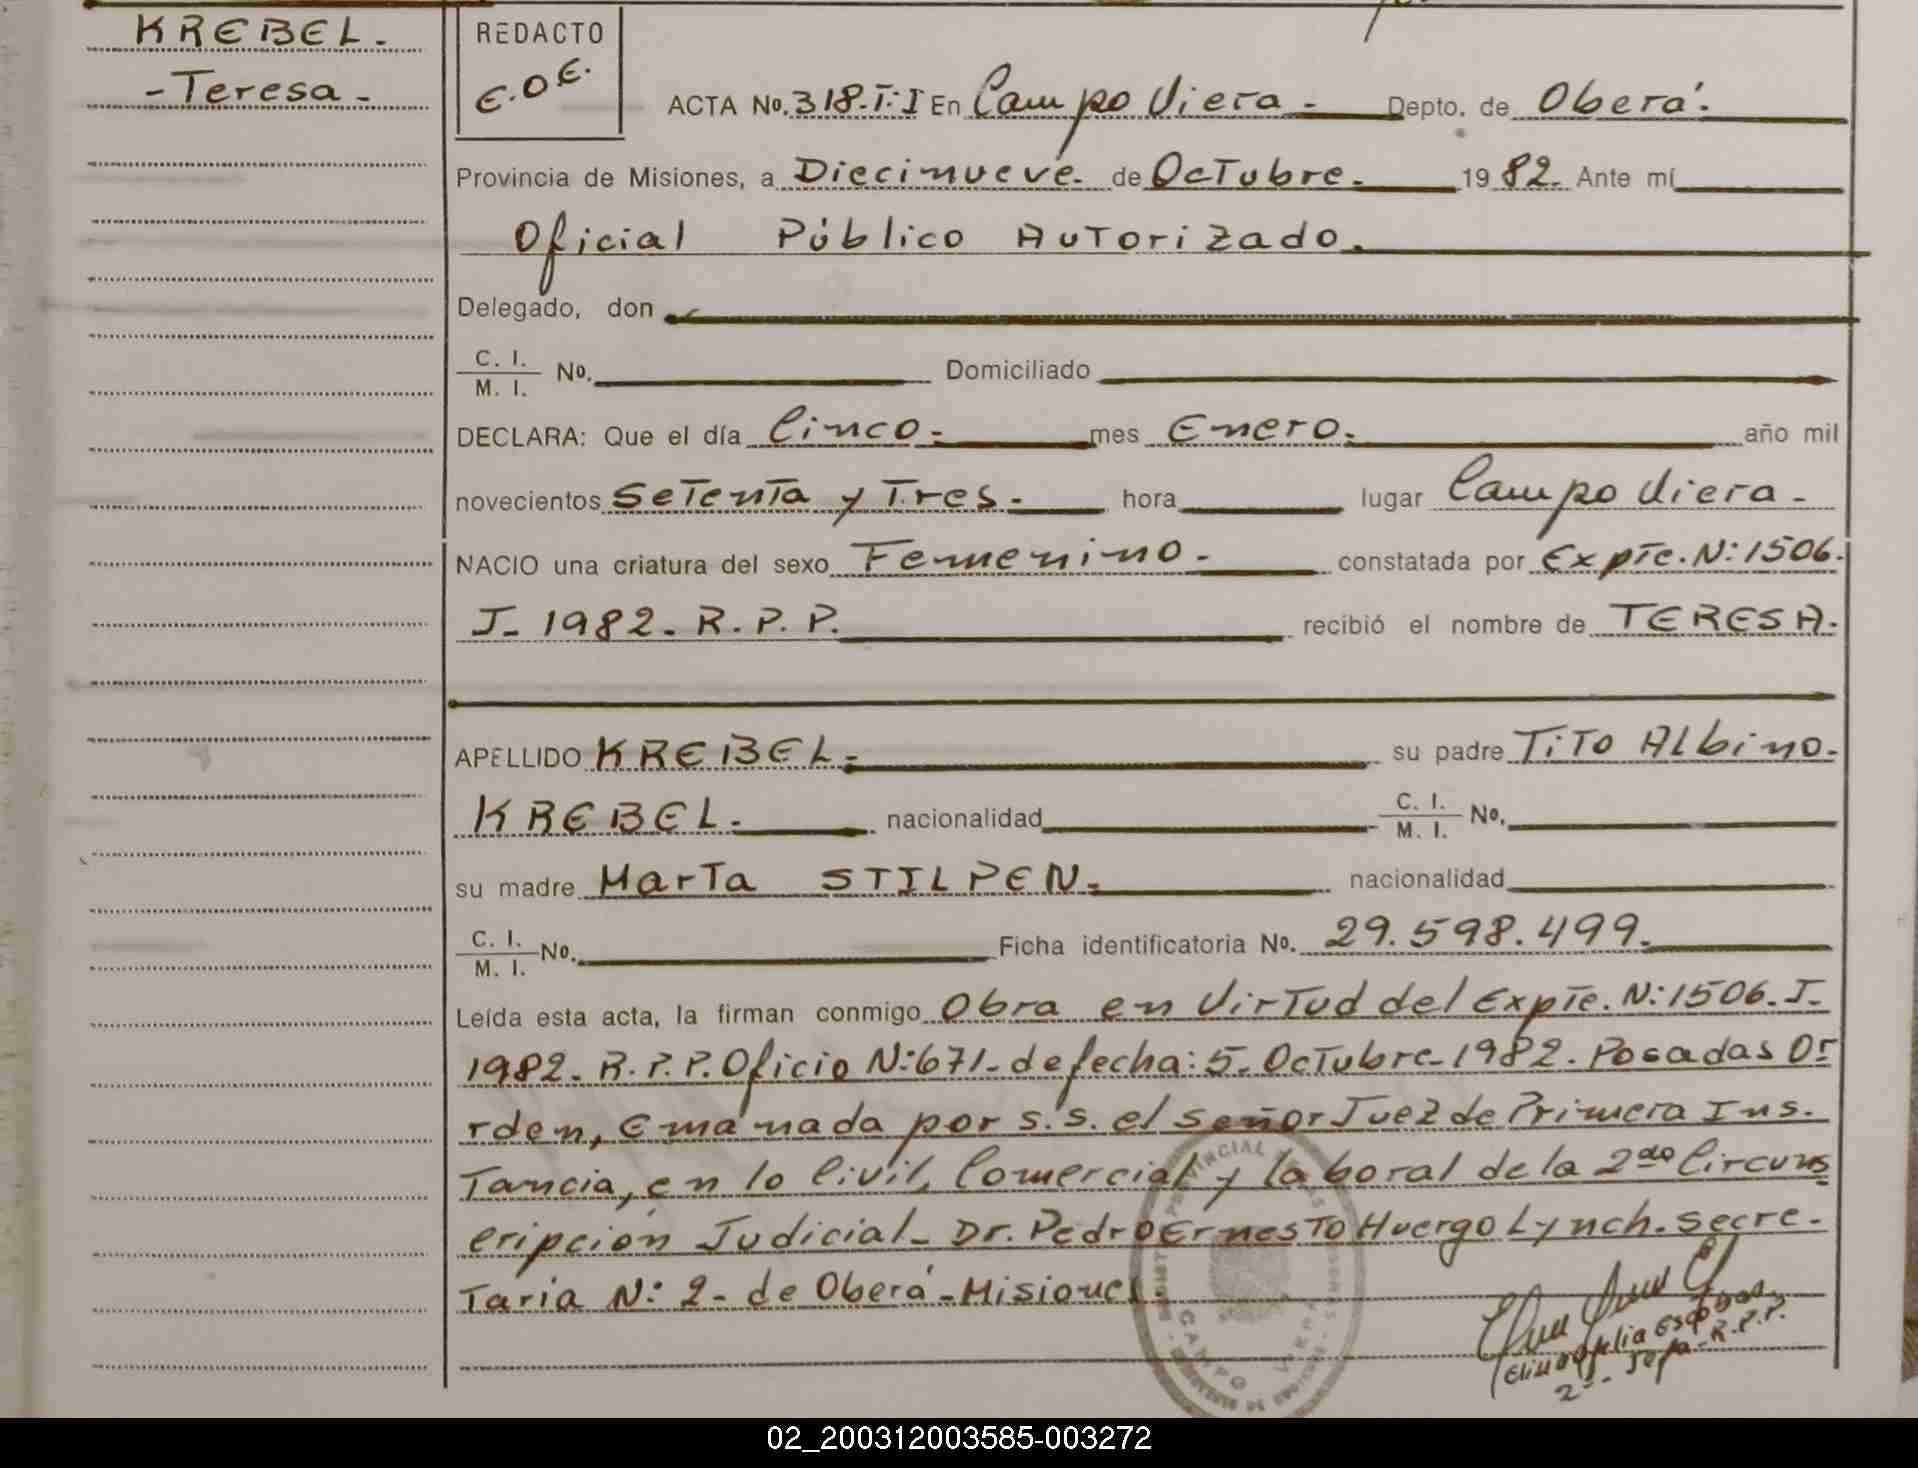 KREBEL.
-Teresa-
REDACTO
E.O.E.
ACTA No. 318.T:I En Campo Viera.- Depto. de Oberá.
Provincia de Misiones, a Diecinueve. de Octubre. 1982. Ante mí
Oficial Público Autorizado.
Delegado, don
C. I.
M. I. No. Domiciliado
DECLARA: Que el día Cinco.- mes Enero. año mil
novecientos Setenta y Tres.- hora lugar Campo Viera-
NACIO una criatura del sexo Femenino.- constatada por Expte. N: 1506.
J- 1982. R.P.P. recibió el nombre de TERESA.
APELLIDO KREBEL. su padre Tito Albino.
KREBEL. nacionalidad C. I.
M. I. No.
su madre Marta STILPEN. nacionalidad
C. I.
M. I. No. Ficha identificatoria No. 29.598.499.
Leída esta acta, la firman conmigo Obra en Virtud del Expte. N: 1506. J-
1982. R.P.P. Oficio N: 671- de fecha: 5. Octubre-1982. Posadas Or
rden, Emanada por S.S. el Señor Juez de Primera Ins.
Tancia, en lo Civil, Comercial y laboral de la 2da Circuns
cripción Judicial- Dr. Pedro Ernesto Huergo Lynch. Secre-
Taria N: 2- de Oberá-Misiones.
CAMPO VIERA
R.P.P.
02_200312003585-003272